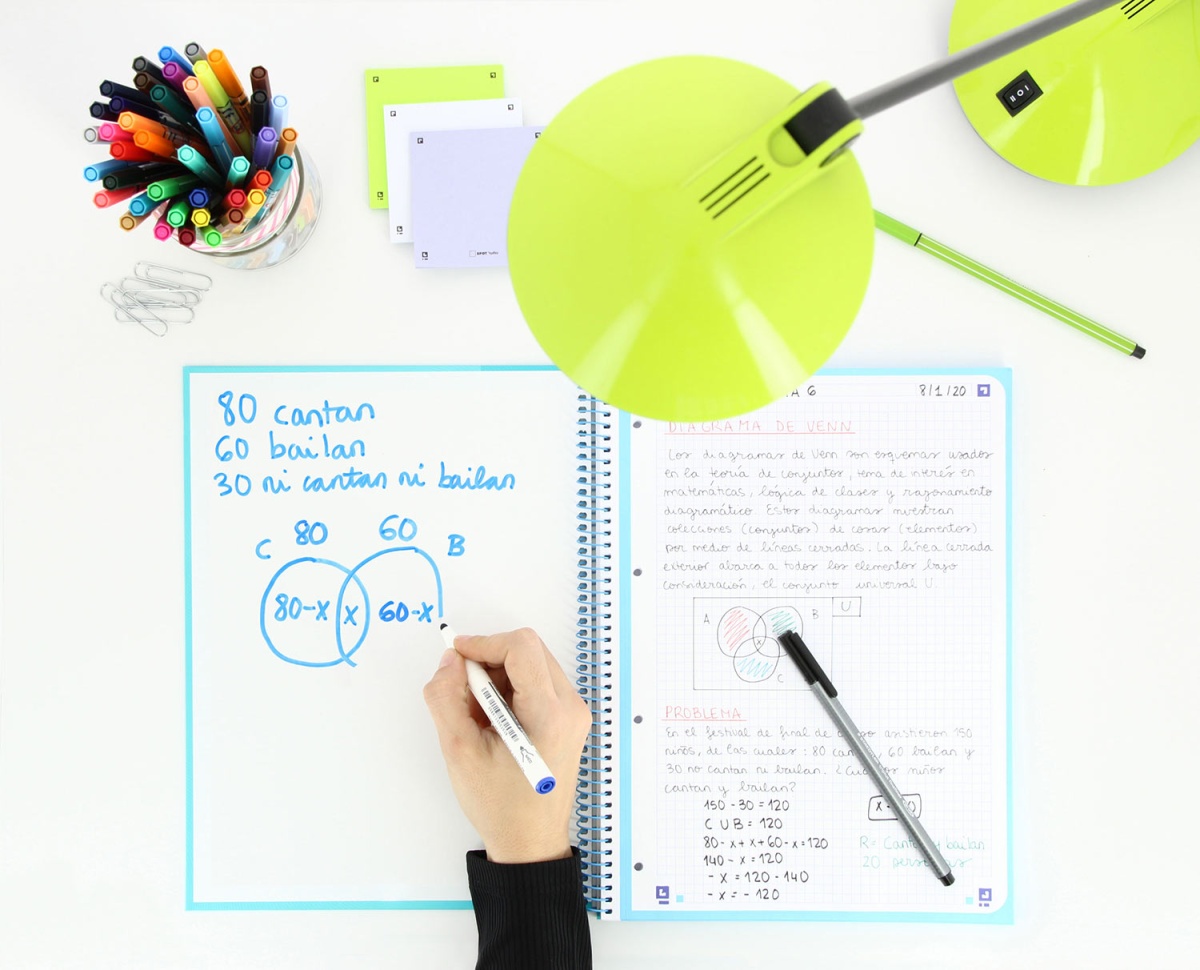 80 cantan
60 bailan
30 ni cantan ni bailan
80 60
C B
80-x x 60-x
6 8/1/20
DIAGRAMA DE VENN
Los diagramas de Venn son esquemas usados
en la teoría de conjuntos, tema de interés en
matemáticas, lógica de clases y razonamiento
diagramático. Estos diagramas muestran
colecciones (conjuntos) de cosas (elementos)
por medio de líneas cerradas. La línea cerrada
exterior abarca a todos los elementos bajo
consideración, el conjunto universal U.
U
A B
x
C
PROBLEMA
En el festival de final de asistieron 150
niños, de las cuales: 80 60 bailan y
30 no cantan ni bailan. niños
cantan y bailan?
150 - 30 = 120
C U B = 120
80 - x + x + 60 - x = 120
140 - x = 120
- x = 120 - 140
- x = - 120
R= y bailan
20